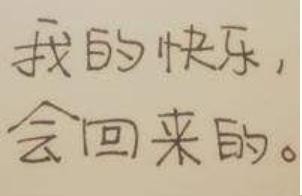 我的快乐，
会回来的。